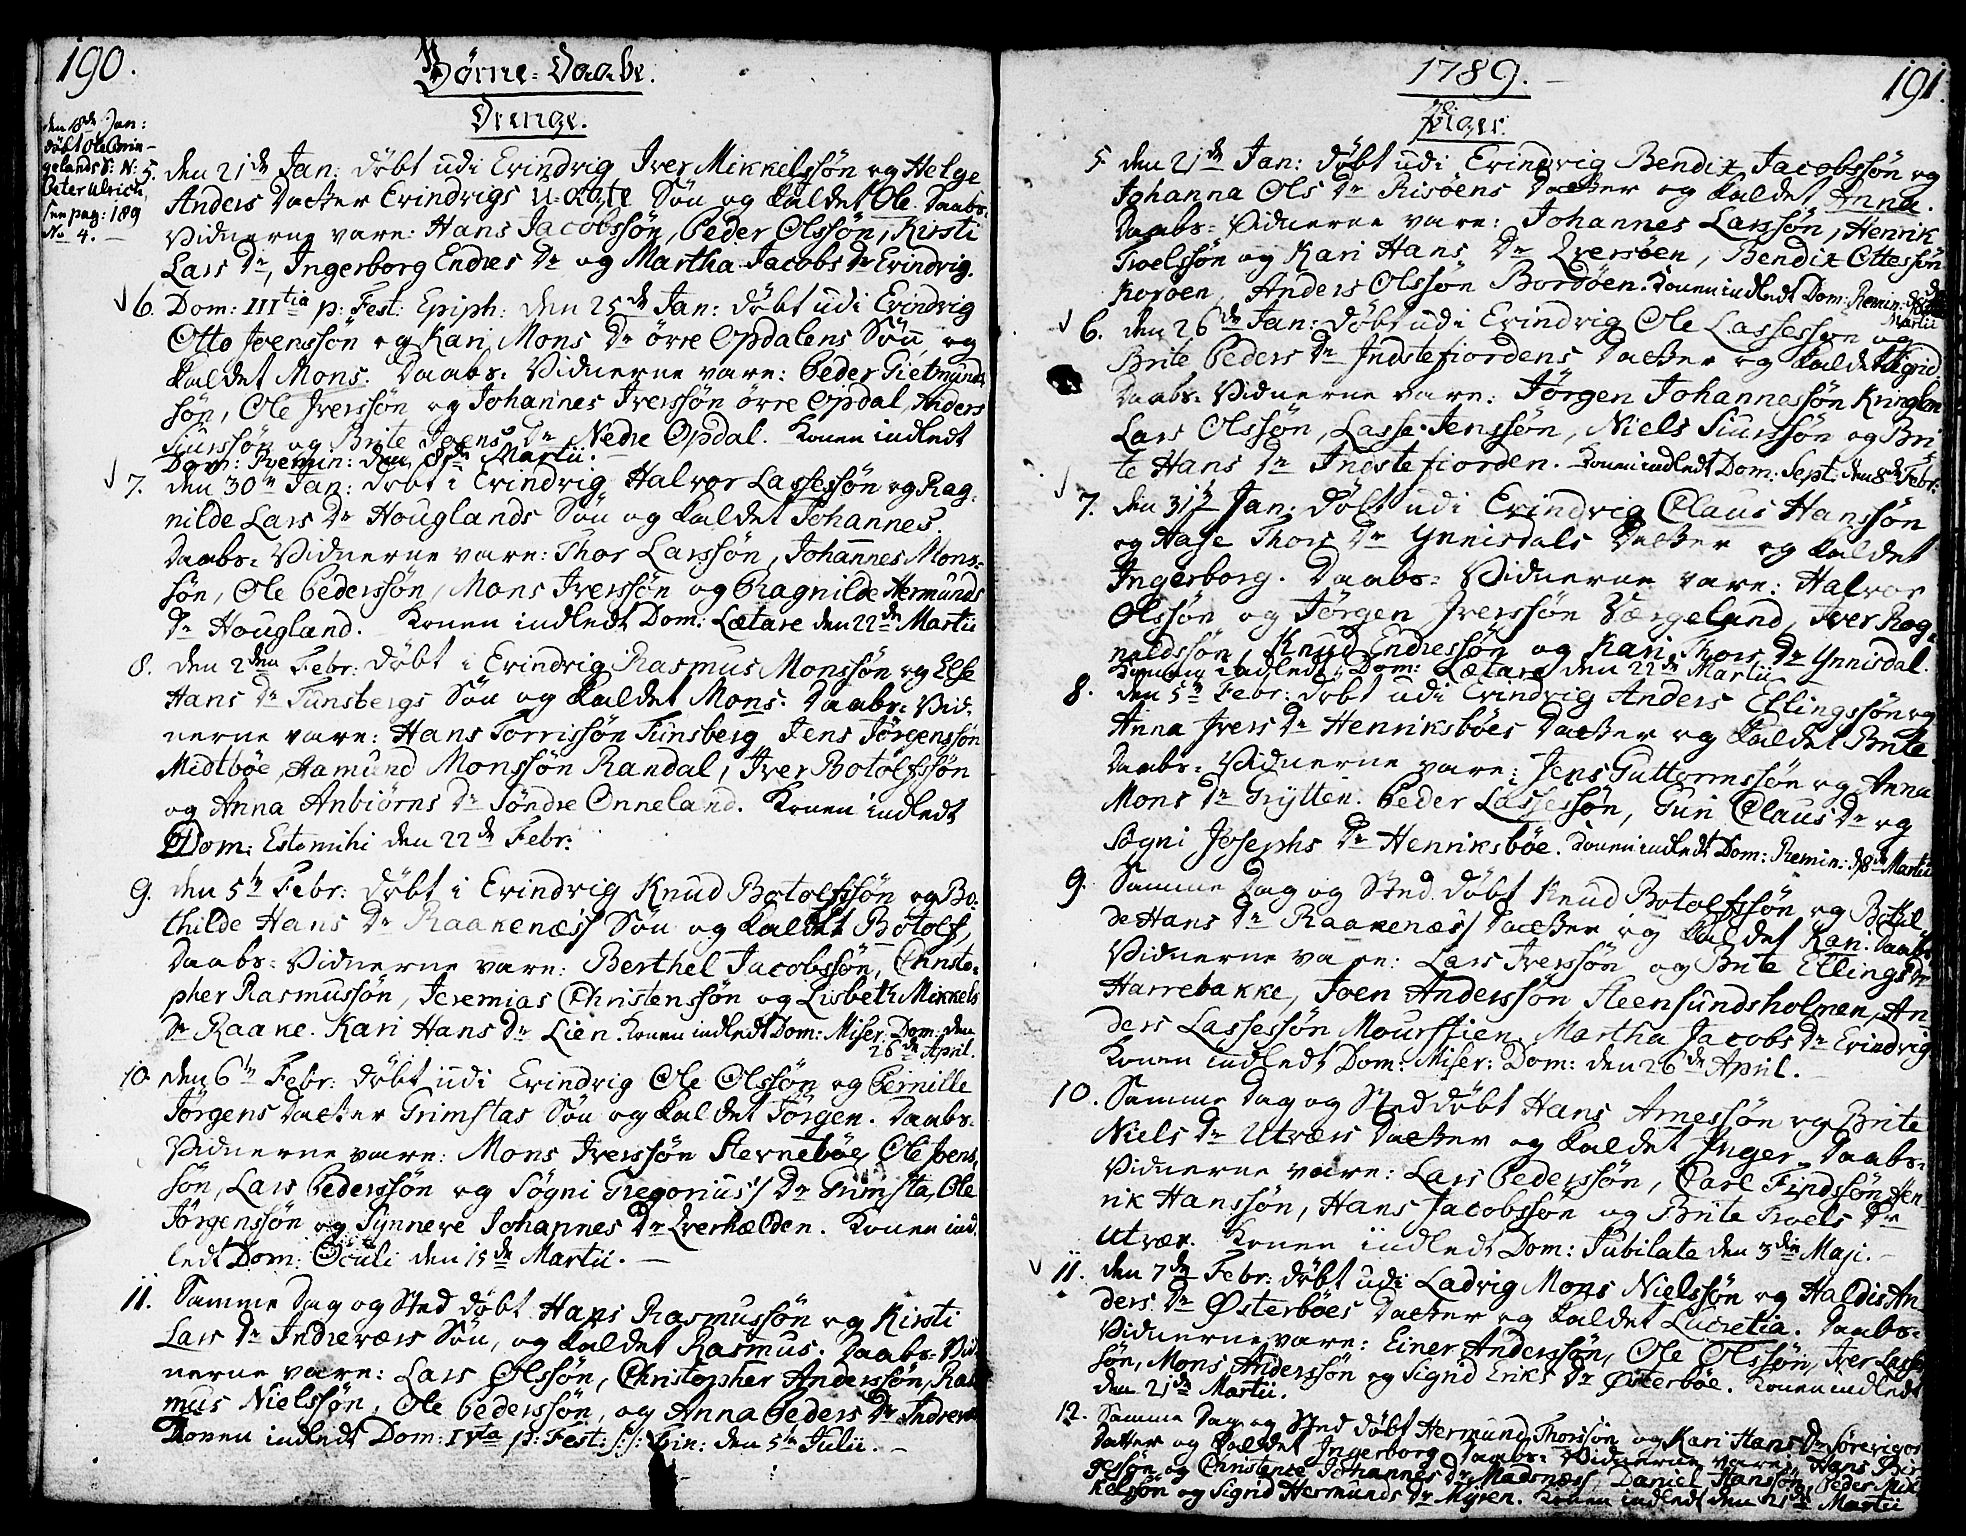 190.
Børne-Daabe.
Drenge.
den 18de Jan:
døbt Ole Brin-
gelands S: N:
Peter Ulrich,
see pag: 189
No 4.
5. den 21de Jan: døbt udi Evindvig Iver Mikkelssøn og Helge
Anders Datter Evindvigs u-ægte Søn og kaldet Ole. Daabs-
Vidnerne vare: Hans Jacobssøn, Peder Olssøn, Kirsti
Lars Dr, Ingerborg Endres Dr og Martha Jacobs Dr Evindvig.
6. Dom: IIItia p: Fest: Epiph: den 25de Jan: døbt udi Evindvig
Otto Joenssøn og Kari Mons Dr øvre Opdalens Søn og
kaldet Mons. Daabs-Vidnerne vare: Peder Gietmunds
søn, Ole Iverssøn og Johannes Iverssøn øvre Opdal, Anders
Siurssøn og Brite Joens Dr Nedre Opdal. Konen indledt
Dom: Remin: den 8de Martii.
7. den 30te Jan: døbt i Evindvig Halvor Lassessøn og Rag-
nilde Lars Dr Houglands Søn og kaldet Johannes.
Daabs-Vidnerne vare: Thor Larssøn, Johannes Mons-
søn, Ole Pederssøn, Mons Iverssøn og Ragnilde Hermunds
Dr Hougland. Konen indledt Dom: Lætare den 22de Martii
8. den 2den Febr: døbt i Evindvig Rasmus Monssøn og Else
Hans Dr Tunsbergs Søn og kaldet Mons. Daabs-Vid-
nerne vare: Hans Torrissøn Tunsberg, Jens Jørgenssøn
Midtbøe, Aamund Monssøn Randal, Iver Botolfssøn
og Anna Anbiørns Dr Søndre Onneland. Konen indledt
Dom: Estomihi den 22de Febr:
9. den 5te Febr: døbt i Evindvig Knud Botolfssøn og Bo-
thilde Hans Dr Raakenæss Søn og kaldet Botolf,
Daabs-Vidnerne vare: Berthel Jacobssøn, Christo-
pher Rasmussøn, Jeremias Christenssøn og Lisbeth Mikkels
Dr Raake. Kari Hans Dr Lien. Konen indledt Dom: Miser: Dom: den
26de April.
10. den 6te Febr: døbt udi Evindvig Ole Olssøn og Pernille
Jørgens Datter Grimstas Søn og kaldet Jørgen. Daabs-
Vidnerne vare: Mons Iverssøn Sternebøe, Ole Joens-
søn, Lars Pederssøn og Søgni Gregorius's Dr Grimsta, Ole
Jørgenssøn og Synneve Johannes Dr Qverhælden. Konen ind-
ledt Dom: Oculi den 15de Martii.
11. Samme Dag og Sted døbt Hans Rasmussøn og Kirsti
Lars Dr Indreværs Søn, og kaldet Rasmus. Daabs-Vid-
nerne vare: Lars Olssøn, Christopher Anderssøn, Ras-
mus Nielssøn, Ole Pederssøn, og Anna Peders Dr Indrevær
Konen indledt Dom: IVta p: Fest: S: S: Trin: den 5te Julii.
1789.
191.
Piger.
5. den 21de Jan: døbt udi Evindvig Bendix Jacobssøn og
Johanna Ols Dr Risøens Datter og kaldet Anna.
Daabs-Vidnerne vare: Johannes Larssøn, Henrik
Troelssøn og Kari Hans Dr Qversøen, Bendix Ottessøn
Korøen, Anders Olssøn Bordøen. Konen indledt Dom: Remin: d 8de
Martii
6. den 26de Jan: døbt udi Evindvig Ole Lassessøn og
Brite Peders Dr Indstefiordens Datter og kaldet Sigrid.
Daabs-Vidnerne vare: Jørgen Johannessøn Kringlen
Lars Olssøn, Lasse Jenssøn, Niels Siurssøn og Bri-
te Hans Dr Indstefiorden. Konen indledt Dom: Sept: den 8de Febr:
7. den 31te Jan: døbt udi Evindvig Claus Hanssøn
og Aase Thors Dr Ynnisdals Datter og kaldet
Ingerborg. Daabs-Vidnerne vare: Halvor
Olssøn og Jørgen Iverssøn Værgeland, Iver Rog-
naldssøn, Knud Endressøn og Kari Thors Dr Ynnisdal.
Konen indledt Dom: Lætare den 22de Martii
8. den 5te Febr: døbt udi Evindvig Anders Ellingssøn og
Anna Ivers Dr Henriksbøes Datter og kaldet Brite
Daabs-Vidnerne vare: Jens Guttormssøn og Anna
Mons Dr Grytten. Peder Lassessøn, Guri Claus Dr og
Søgni Josephs Dr Henriksbøe. Konen indledt Dom: Remin: d 8de Martii
9. Samme Dag og Sted døbt Knud Botolfssøn og Bothil-
de Hans Dr Raakenæss Datter og kaldet Kari. Daabs-
Vidnerne vare: Lars Iverssøn og Brite Ellings Dr
Harrebakke, Joen Anderssøn Steensundsholmen, An-
ders Lassessøn Mourstien, Martha Jacobs Dr Evindvig
Konen indledt Dom: Miser: Dom: den 26de April.
10. Samme Dag og Sted døbt Hans Arnessøn og Brite
Niels Dr Utværs Datter og kaldet Inger. Daabs-
Vidnerne vare: Lars Pederssøn, Carl Findssøn, Hen-
rik Hanssøn, Hans Jacobssøn og Brite Troels Dr
Utvær. Konen indledt Dom: Jubilate den 3die Maji.
11. den 7de Febr: døbt udi Ladvig Mons Nielssøn og Haldis An-
ders Dr Østerbøes Datter og kaldet Lucretia. Daabs-
Vidnerne vare: Einer Anderssøn, Ole Olssøn, Iver Lasse-
søn, Mons Anderssøn og Sigrid Eriks Dr Østerbøe. Konen indledt
den 21de Martii.
12. Samme Dag og Sted døbt Hermund Thorssøn og Kari Hans Dr
Datter og kaldet Ingerborg. Daabs-Vidnerne vare: Hans
og Christence Johannes Dr Madsnæss, Daniel Hanssøn, Peder Mik-
kelssøn og Sigrid Hermunds Dr Myren. Konen indledt den 21de Martii